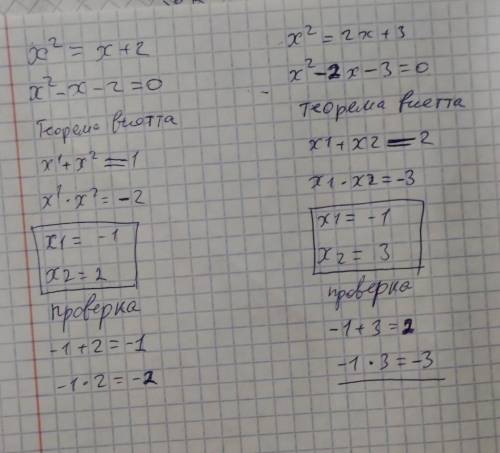 x² = x+2
x²-x-2=0
Теорема виетта
x¹+x²=1
x¹·x²=-2
x1= -1
x2= 2
проверка
-1+2=-1
-1·2=-2
x²=2x+3
x²-2x-3=0
теорема виетта
x1+x2=2
x1·x2=-3
x1= -1
x2= 3
проверка
-1+3=2
-1·3=-3